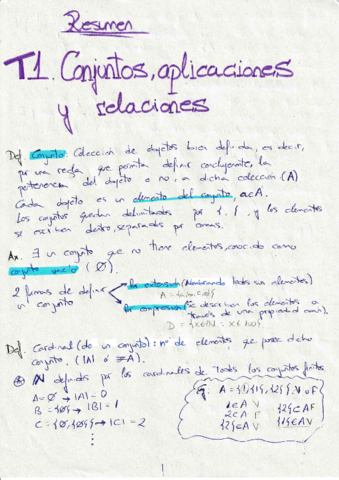 Resumen
T1. Conjuntos, aplicaciones
y relaciones
Def. Conjunto: Colección de objetos bien definida, es decir,
por una regla que permita definir concluyente, la
pertenencia del objeto o no, a dicha colección (A)
Cada objeto es un elemento del conjunto, a∈A.
Los conjuntos quedan delimitados por { }, y los elementos
se escriben dentro, separados por comas.
Ax. ∃ un conjunto que no tiene elementos, conocido como
conjunto vacío (∅).
2 formas de definir
un conjunto
Por extensión (Nombrando todos sus elementos)
Por comprensión (Se describen los elementos a
través de una propiedad común).
D = {x∈ℕ : x<10}
Def. Cardinal (de un conjunto): nº de elementos que posee dicho
conjunto. (|A| ó #A).
ℕ definido por los cardinales de todos los conjuntos finitos
A=∅ → |A|=0
B={∅} → |B|=1
C={∅,{∅}} → |C|=2
⋮
Ej. A={1,{1},{2}} V o F
1∈A V
2∈A F
{2}∈A V
1